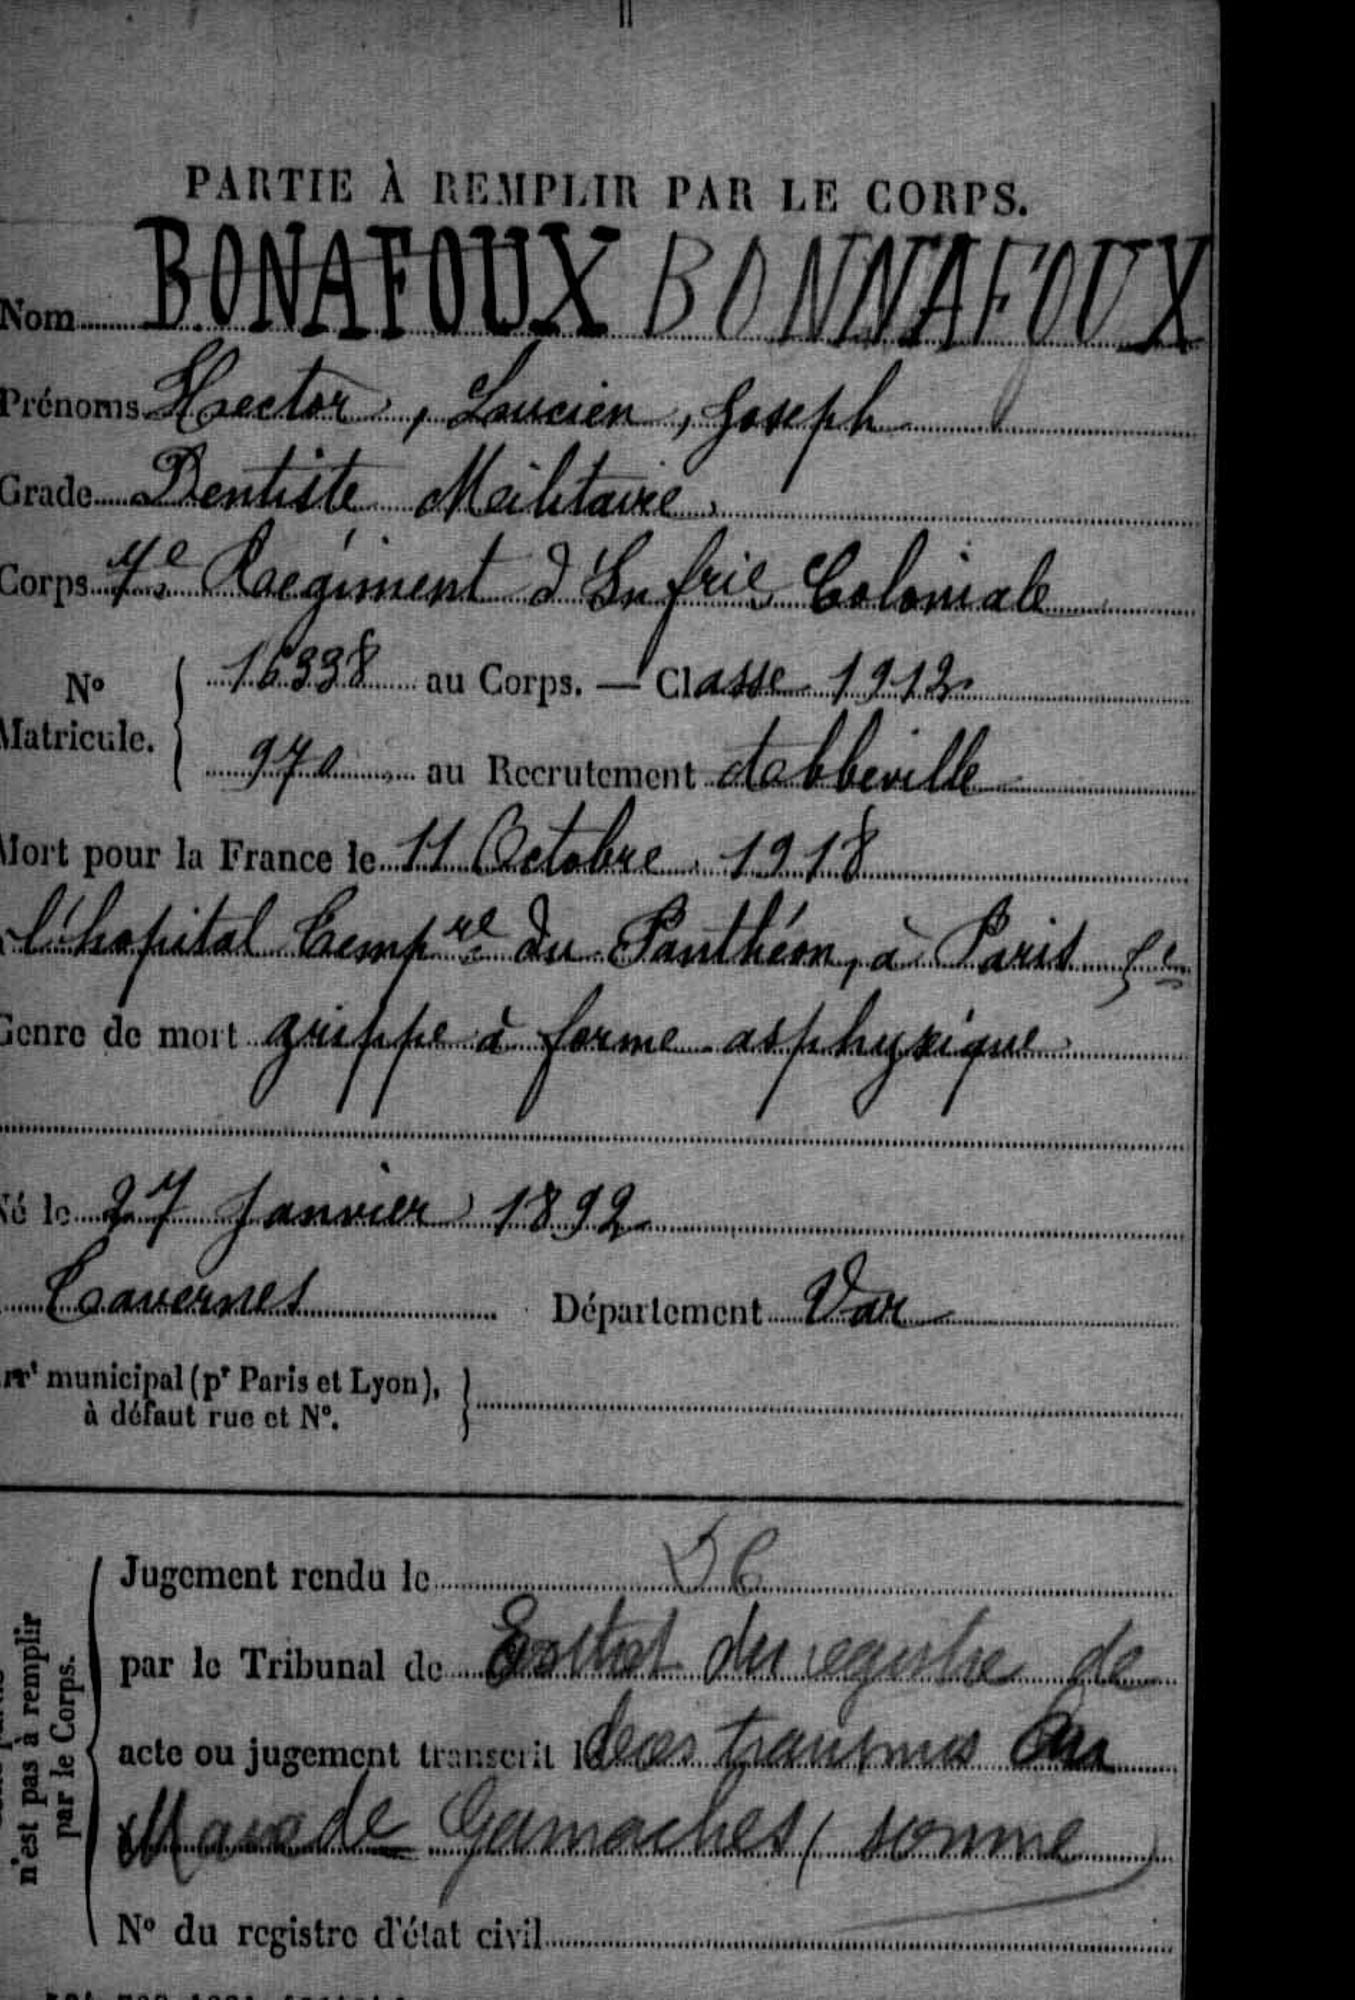 PARTIE À REMPLIR PAR LE CORPS.
Nom BONAFOUX BONNAFOUX
Prénoms Hector, Lucien, Joseph
Grade Dentiste Militaire
Corps 7e Régiment d'Infrie Coloniale
No Matricule. 16338 au Corps. — Classe 1912
970 au Recrutement Abbeville
Mort pour la France le 11 Octobre 1918
l'hopital Tempre du Panthéon, à Paris 5e
Genre de mort grippe à forme asphyxique
Né le 27 Janvier 1892
Tavernes Département Var
rrt municipal (pr Paris et Lyon),
à défaut rue et No.
n'est pas à remplir
par le Corps.
Jugement rendu le DC
par le Tribunal de Extrait du registre de
acte ou jugement transcrit le deces transmis au
Maire de Gamaches (Somme)
No du registre d'état civil